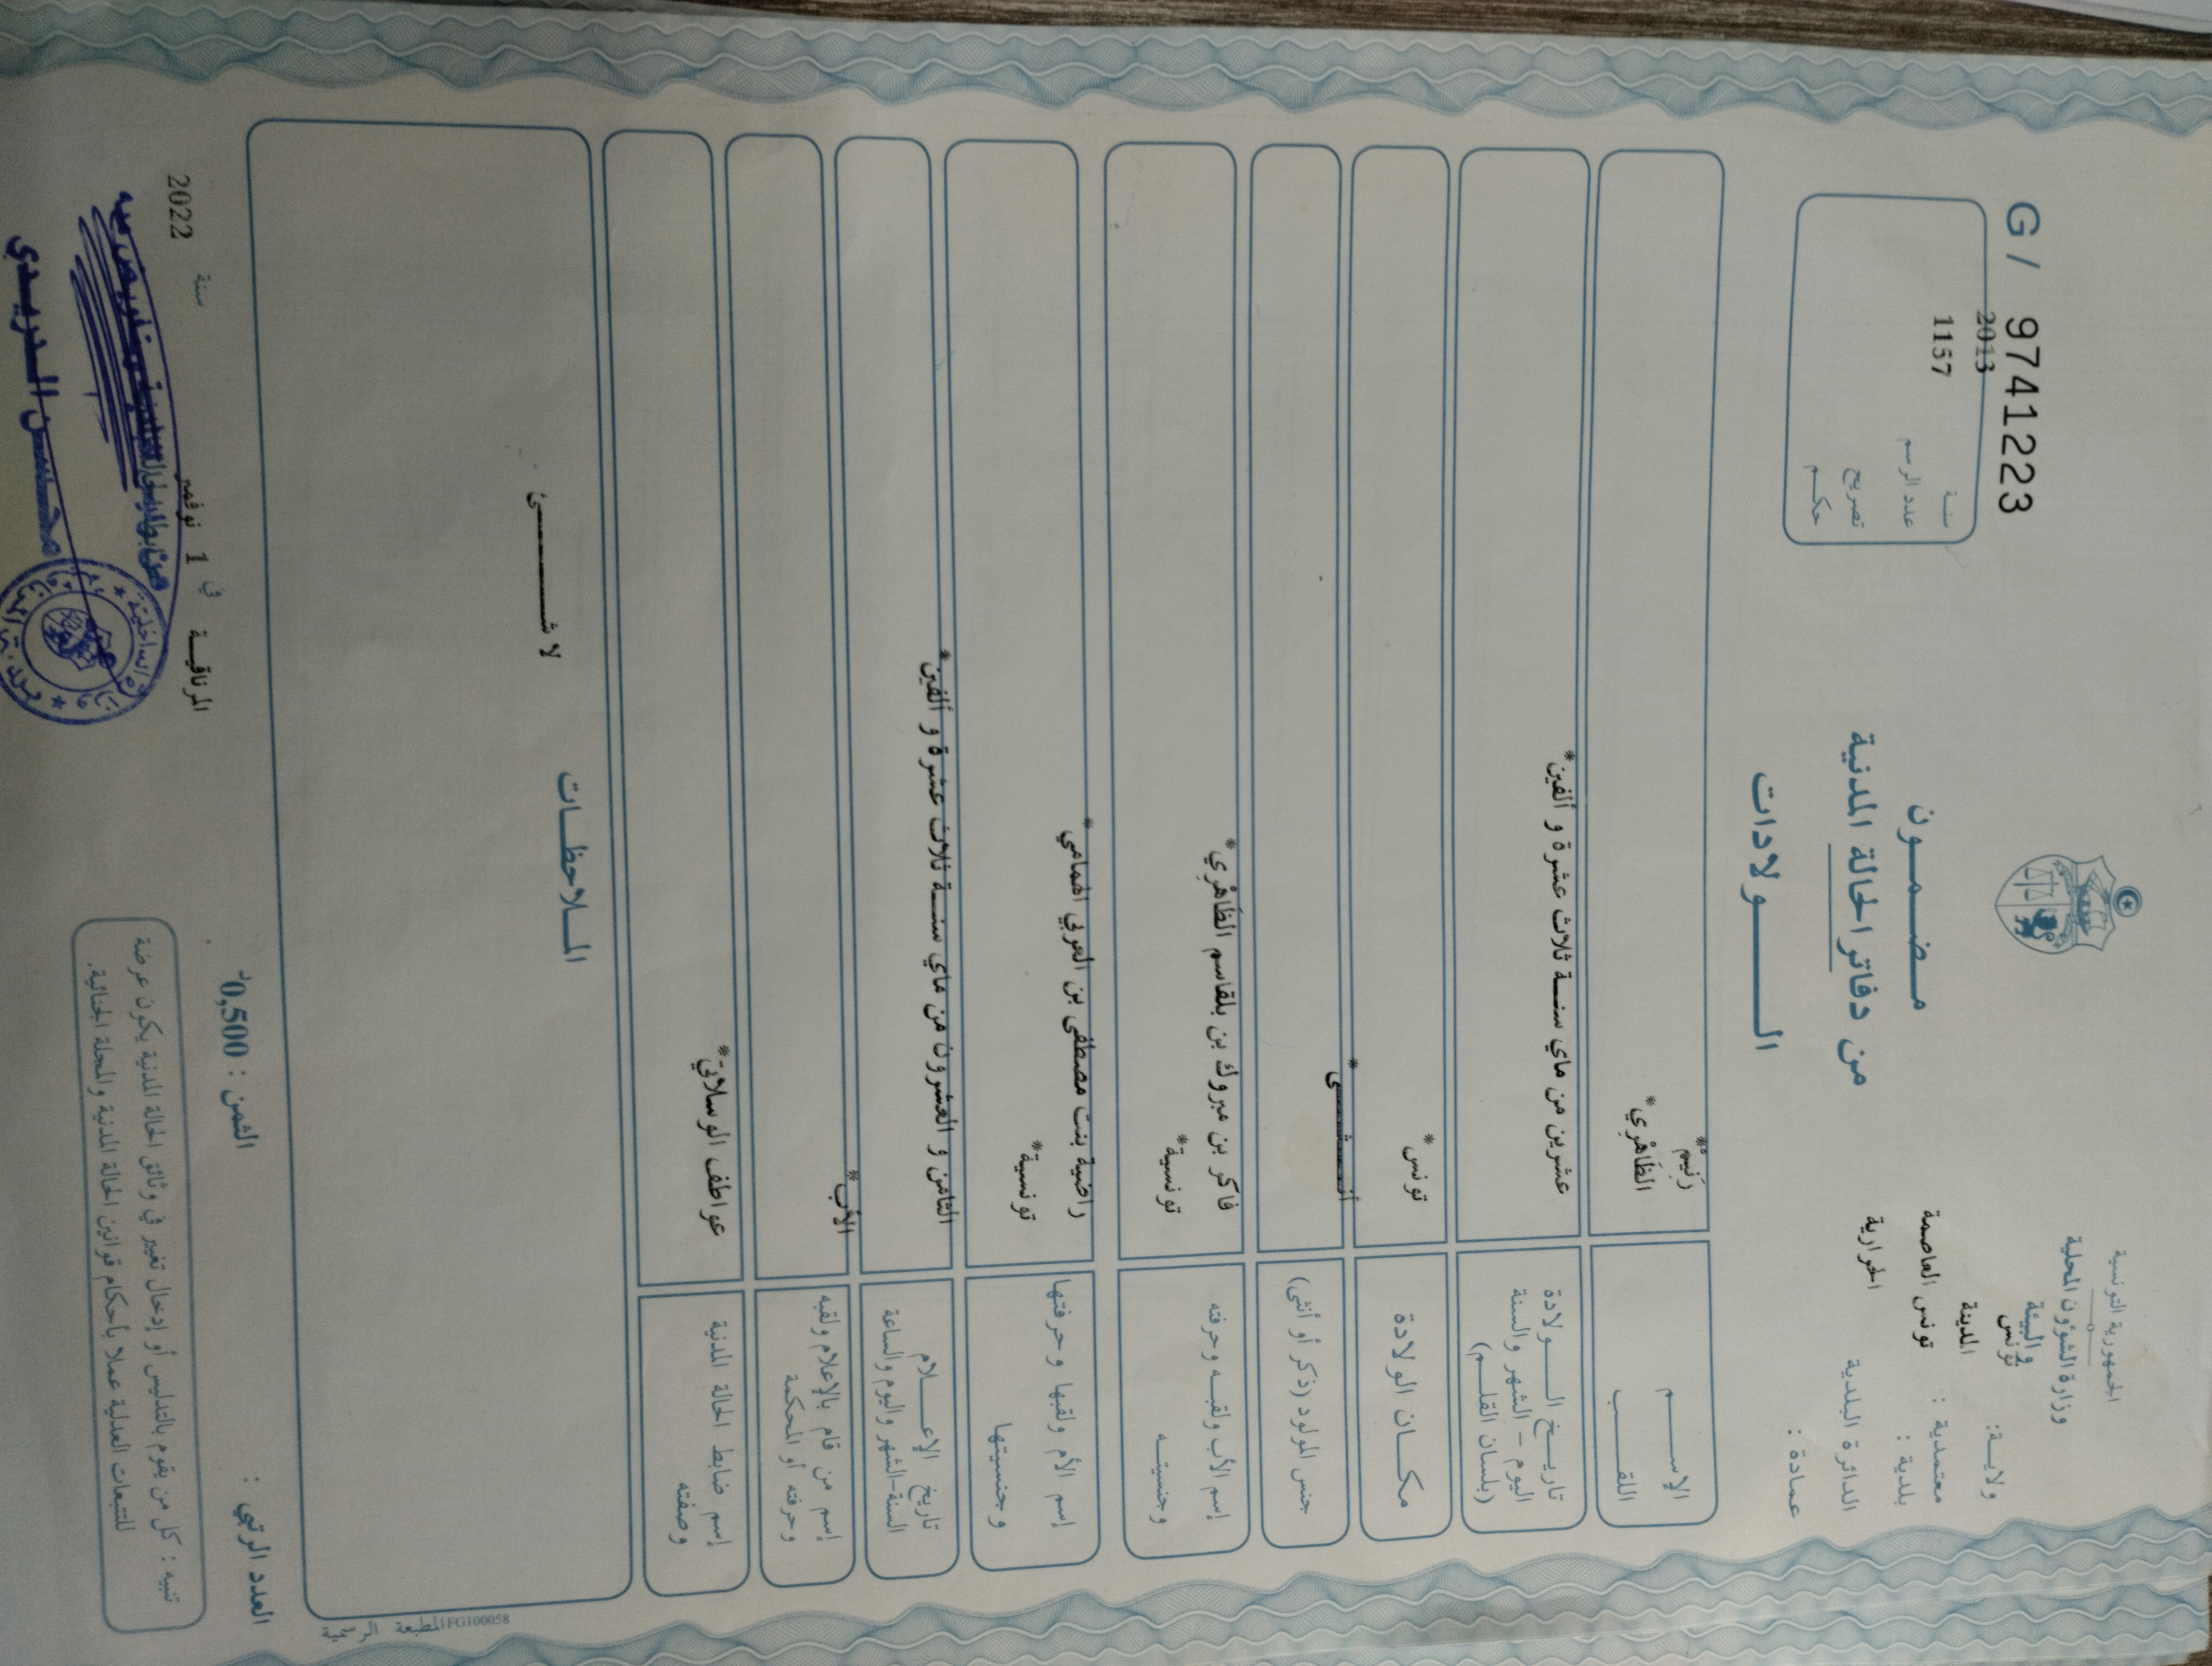 الجمهورية التونسية
وزارة الشؤون المحلية
والبيئة
ولايـة: تونس
معتمدية : المدينة
بلدية : تونس العاصمة
الدائرة البلدية الخرارية
عمادة :
G/ 9741223
سنـة 2013
عدد الرسم 1157
تصريح
حكـم
مـضـمـون
من دفاتر الحالة المدنية
الـــولادات
الإســـم رَنِيمْ*
اللقـــب الظَاهْرِي*
تاريـخ الـــولادة
اليوم - الشهر والسنة
(بلسان القلـــم)
عشرين من ماي سنـة ثلاث عشرة و ألفين*
مكـــان الولادة تونس*
جنس المولود (ذكر أو أنثى) أنـــثـــى*
إسم الأب ولقبـه وحرفته
وجنسيتـه
فاكر بن مبروك بن بلقاسم الظَاهْرِي*
تونسية*
إسم الأم ولقبها وحرفتها
وجنسيتها
راضية بنت مصطفى بن العربي الهمامي*
تونسية*
تاريخ الإعـــلام
السنة-الشهر واليوم والساعة
الثامن و العشرون من ماي سنـة ثلاث عشرة و ألفين*
إسم من قام بالإعلام ولقبه
وحرفته أو المحكمة
الأب*
إسم ضابط الحالة المدنية
وصفته
عواطف الوسلاتي*
المـلاحظـات
لا شـــــئ
المطبعة الرسمية IFG100058
العدد الرتبي :
الثمن : 0,500د
المرناقيـة في 1 نوفمبر سنة 2022
محسن الدريدي
تنبيه : كل من يقوم بالتدليس أو إدخال تغيير في وثائق الحالة المدنية يكون عرضة
للتتبعات العدلية عملا بأحكام قوانين الحالة المدنية والمجلة الجنائية.